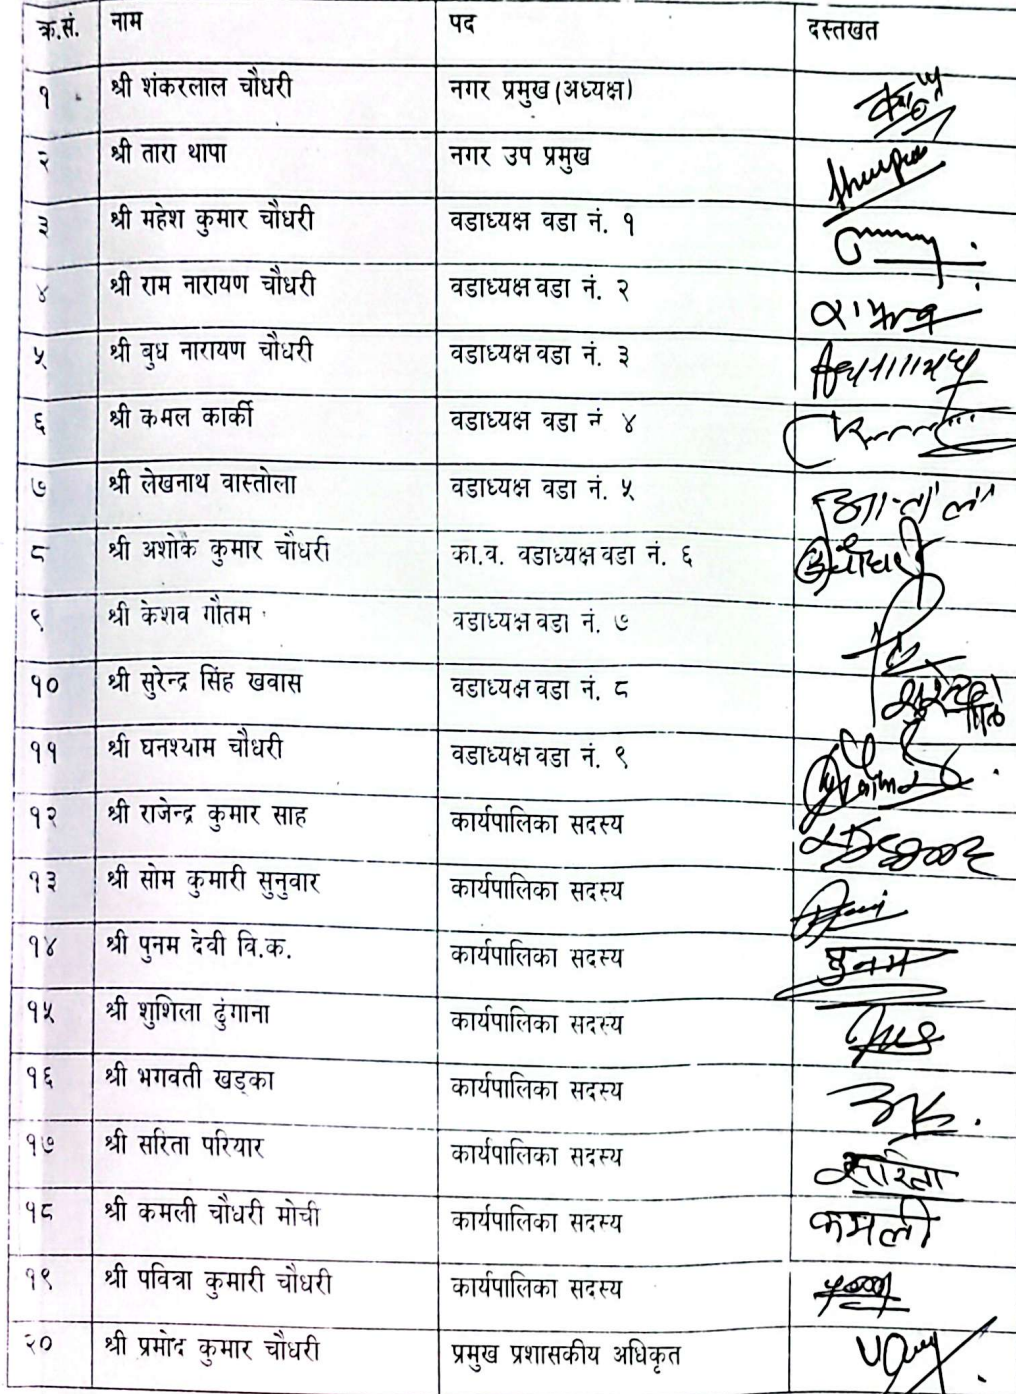 क्र.सं. नाम पद दस्तखत
१ श्री शंकरलाल चौधरी नगर प्रमुख (अध्यक्ष)
२ श्री तारा थापा नगर उप प्रमुख
३ श्री महेश कुमार चौधरी वडाध्यक्ष वडा नं. १
४ श्री राम नारायण चौधरी वडाध्यक्ष वडा नं. २
५ श्री बुध नारायण चौधरी वडाध्यक्ष वडा नं. ३
६ श्री कमल कार्की वडाध्यक्ष वडा नं ४
७ श्री लेखनाथ वास्तोला वडाध्यक्ष वडा नं. ५
८ श्री अशोक कुमार चौधरी का.व. वडाध्यक्ष वडा नं. ६
९ श्री केशव गौतम वडाध्यक्ष वडा नं. ७
१० श्री सुरेन्द्र सिंह खवास वडाध्यक्ष वडा नं. ८
११ श्री घनश्याम चौधरी वडाध्यक्ष वडा नं. ९
१२ श्री राजेन्द्र कुमार साह कार्यपालिका सदस्य
१३ श्री सोम कुमारी सुनुवार कार्यपालिका सदस्य
१४ श्री पुनम देवी वि.क. कार्यपालिका सदस्य पुनम
१५ श्री शुशिला ढुंगाना कार्यपालिका सदस्य
१६ श्री भगवती खड्का कार्यपालिका सदस्य
१७ श्री सरिता परियार कार्यपालिका सदस्य सरिता
१८ श्री कमली चौधरी मोची कार्यपालिका सदस्य कमली
१९ श्री पवित्रा कुमारी चौधरी कार्यपालिका सदस्य
२० श्री प्रमोद कुमार चौधरी प्रमुख प्रशासकीय अधिकृत